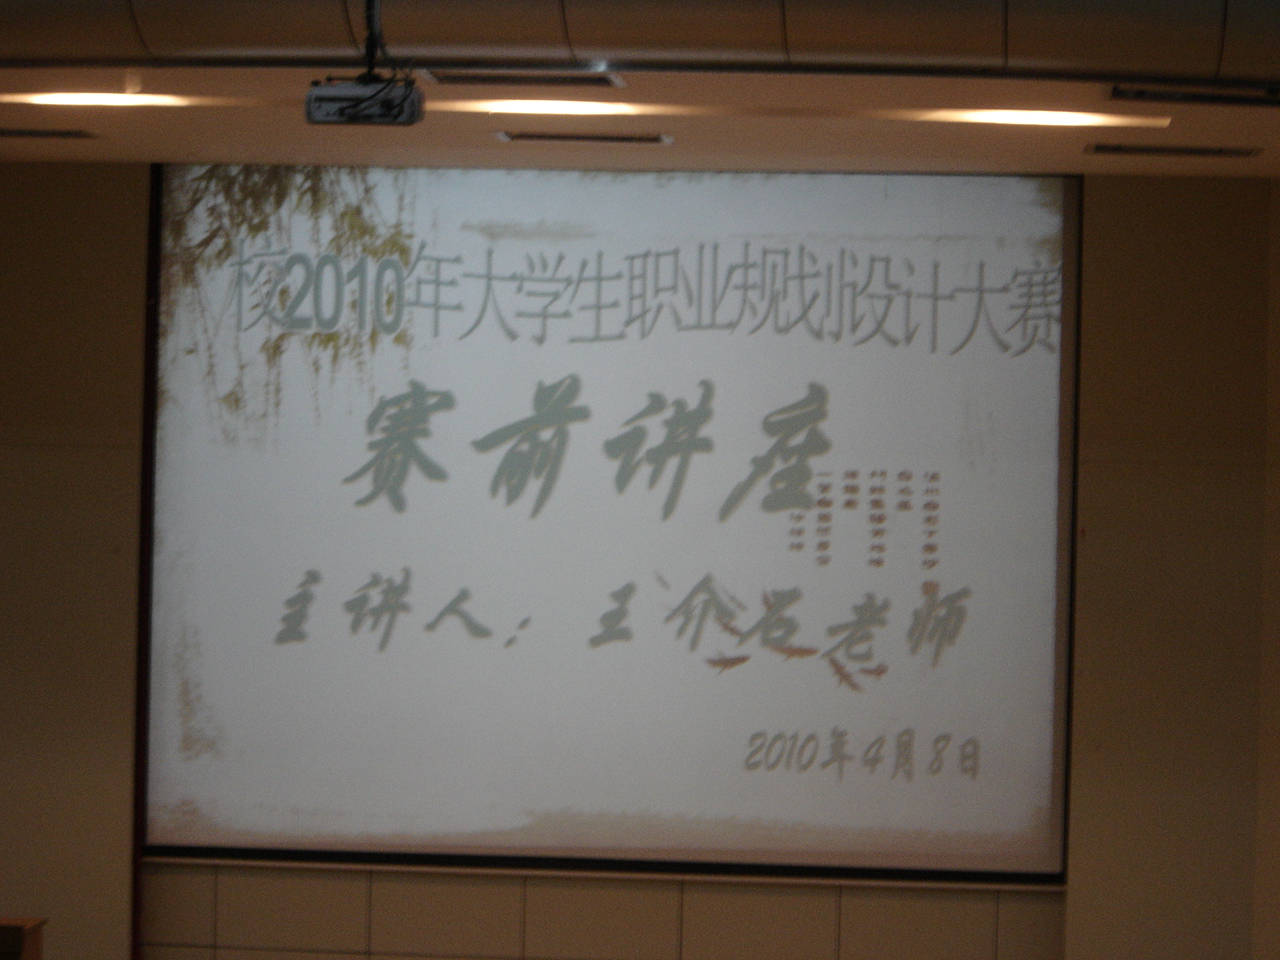 校2010年大学生职业规划设计大赛
赛前讲座
主讲人：王介石老师
2010年4月8日